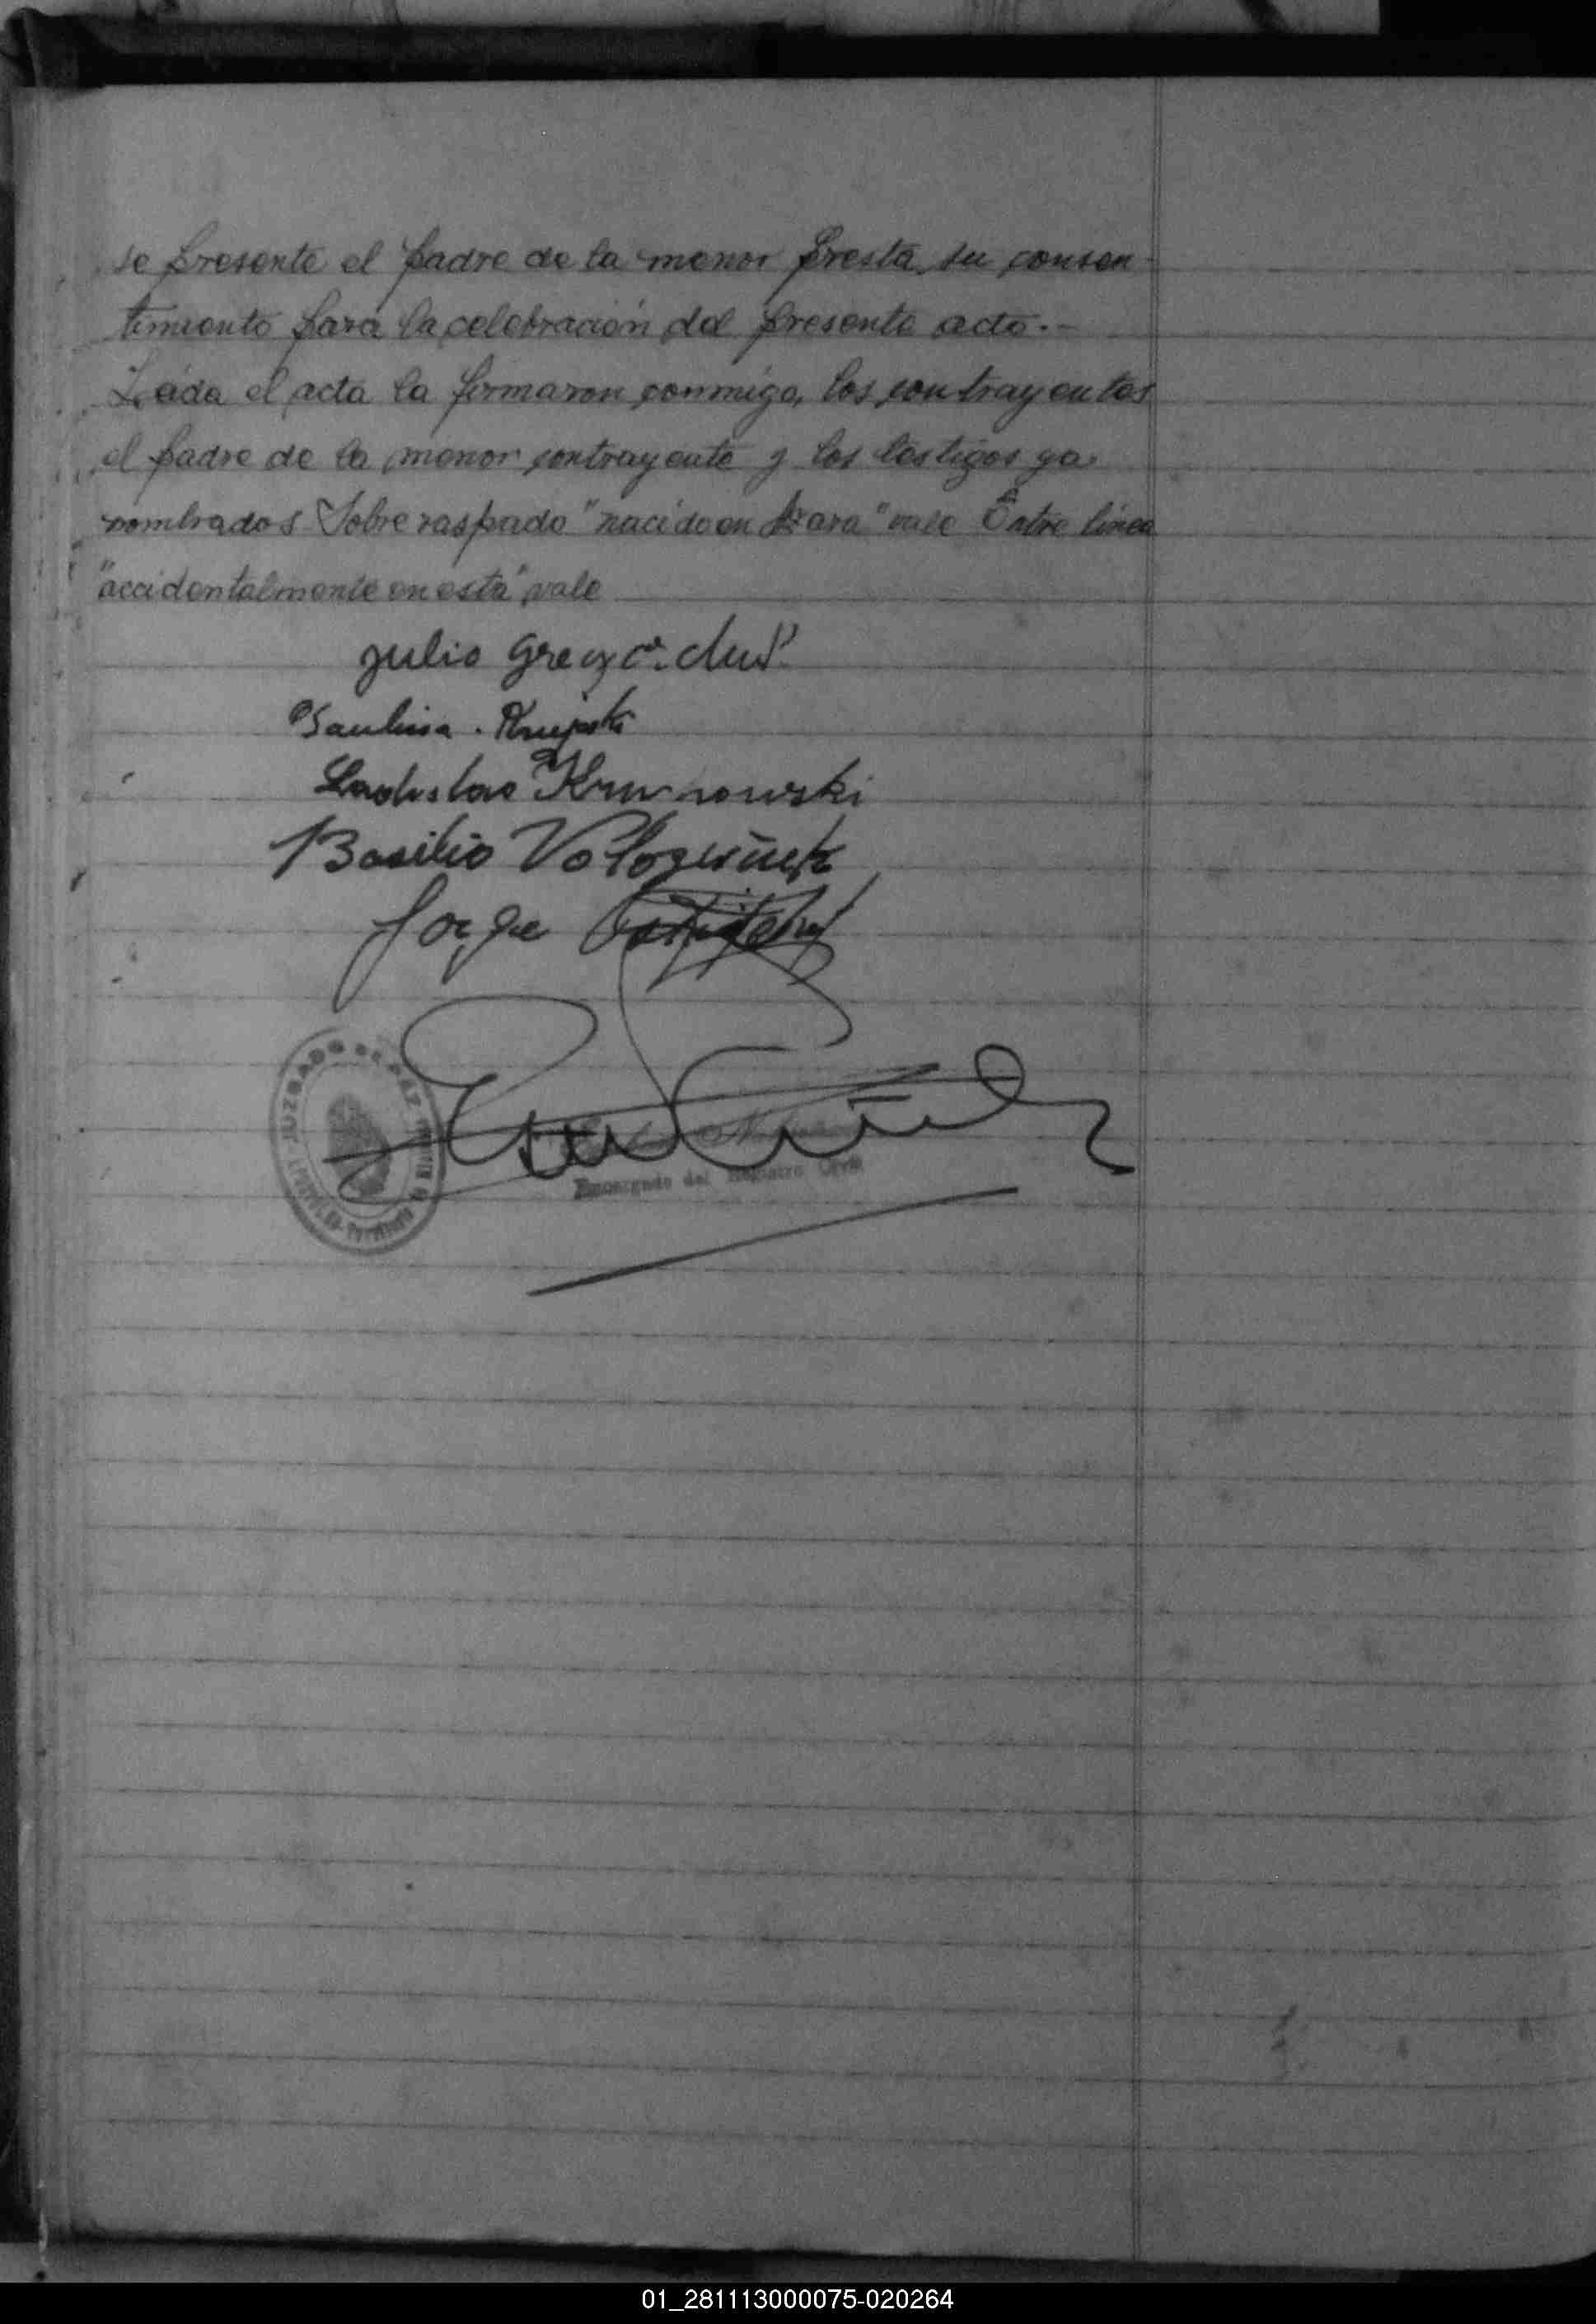 se presente el padre de la menor presta su consen-
timiento para la celebración del presente acto.-
Leída el acta la firmaron conmigo, los contrayentes
el padre de la menor contrayente y los testigos ya
nombrados Sobre raspado "nacido en Apará" vale Entre línea
"accidentalmente en esta" vale
Julio
Paulina
Ladislao
Basilio
Jorge
JUZGADO DE PAZ
Encargado del Registro Civil
01_281113000075-020264